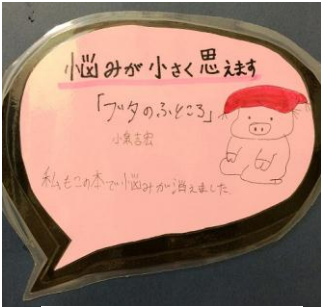 悩みが小さく思えます
「ブタのふところ」
小泉吉宏
私もこの本で悩みが消えました。